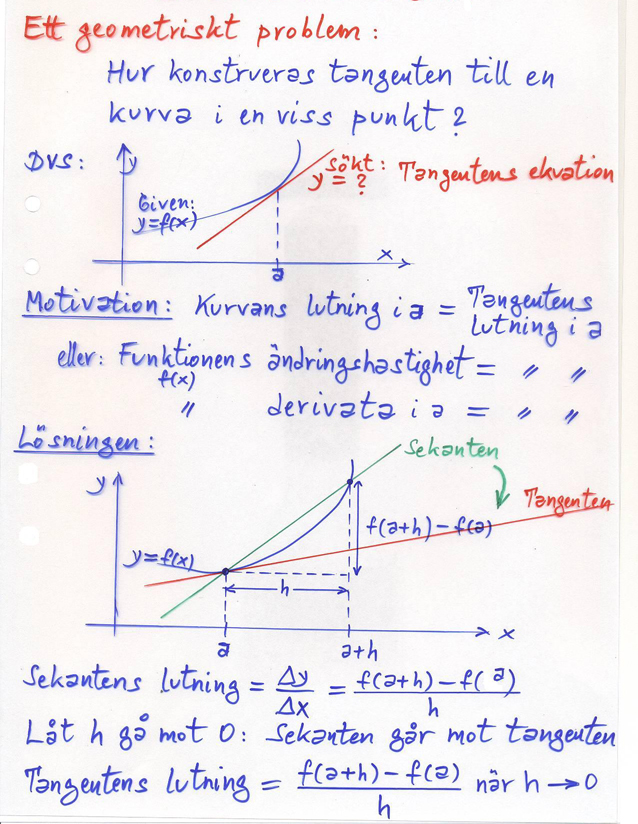 Ett geometriskt problem :
Hur konstrueras tangenten till en
kurva i en viss punkt ?
DVS: y Sökt: Tangentens ekvation
y = ?
Given:
y=f(x)
x
a
Motivation: Kurvans lutning i a = Tangentens
lutning i a
eller: Funktionens ändringshastighet = " "
f(x)
" derivata i a = " "
Lösningen:
Sekanten
y
Tangenten
f(a+h)-f(a)
y=f(x)
h
x
a a+h
Sekantens lutning = Δy/Δx = f(a+h)-f(a)/h
Låt h gå mot 0: Sekanten går mot tangenten
Tangentens lutning = f(a+h)-f(a)/h när h→0